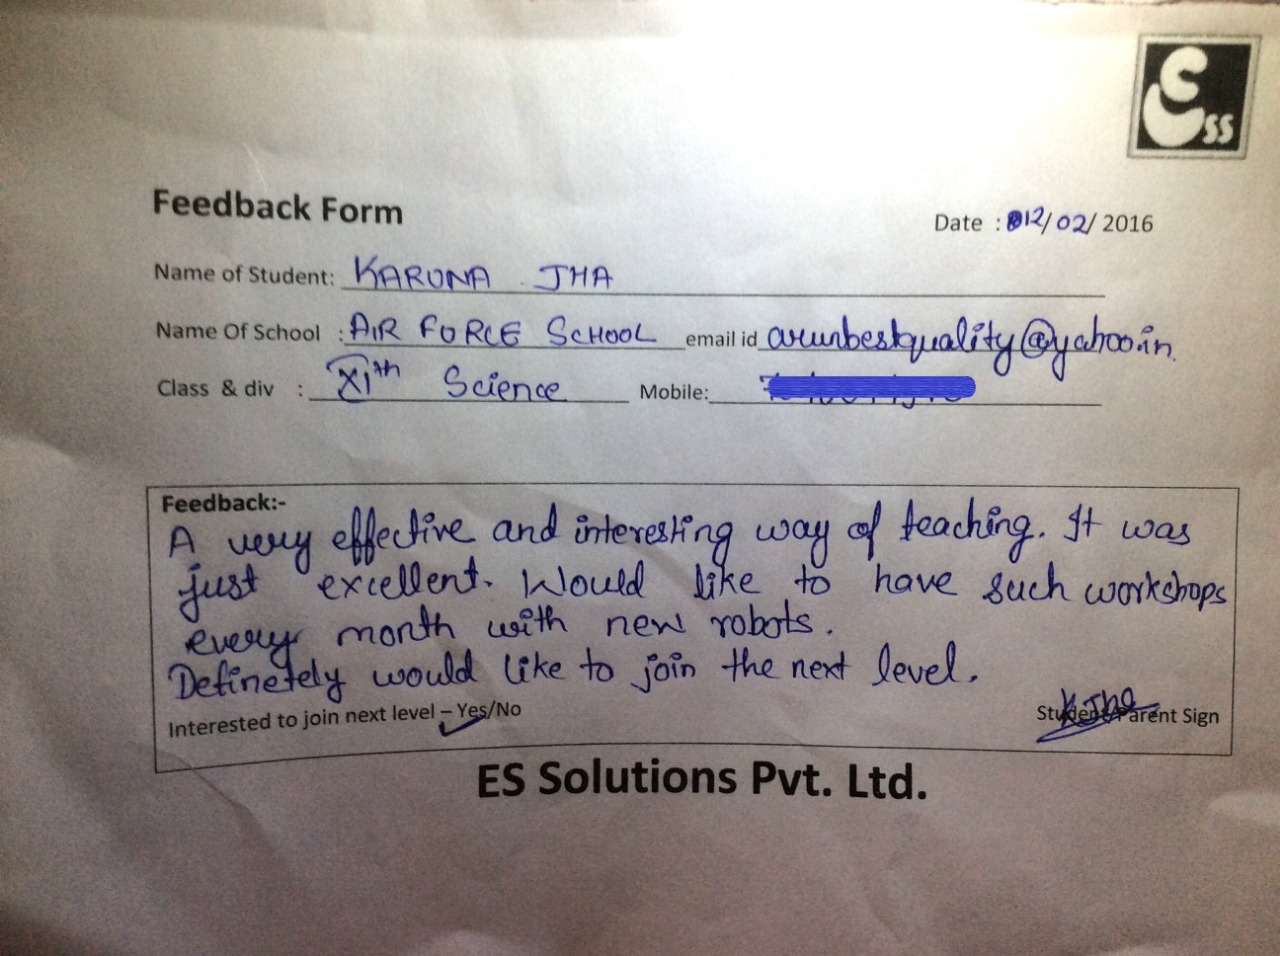 ESS
Feedback Form
Date : 12/02/2016
Name of Student: KARUNA JHA
Name Of School : AIR FORCE SCHOOL email id arunbestquality@yahoo.in
Class & div : XIth Science Mobile:
Feedback:-
A very effective and interesting way of teaching. It was
just excellent. Would like to have such workshops
every month with new robots.
Definetely would like to join the next level.
Interested to join next level – Yes/No
K.Jha
Student/Parent Sign
ES Solutions Pvt. Ltd.